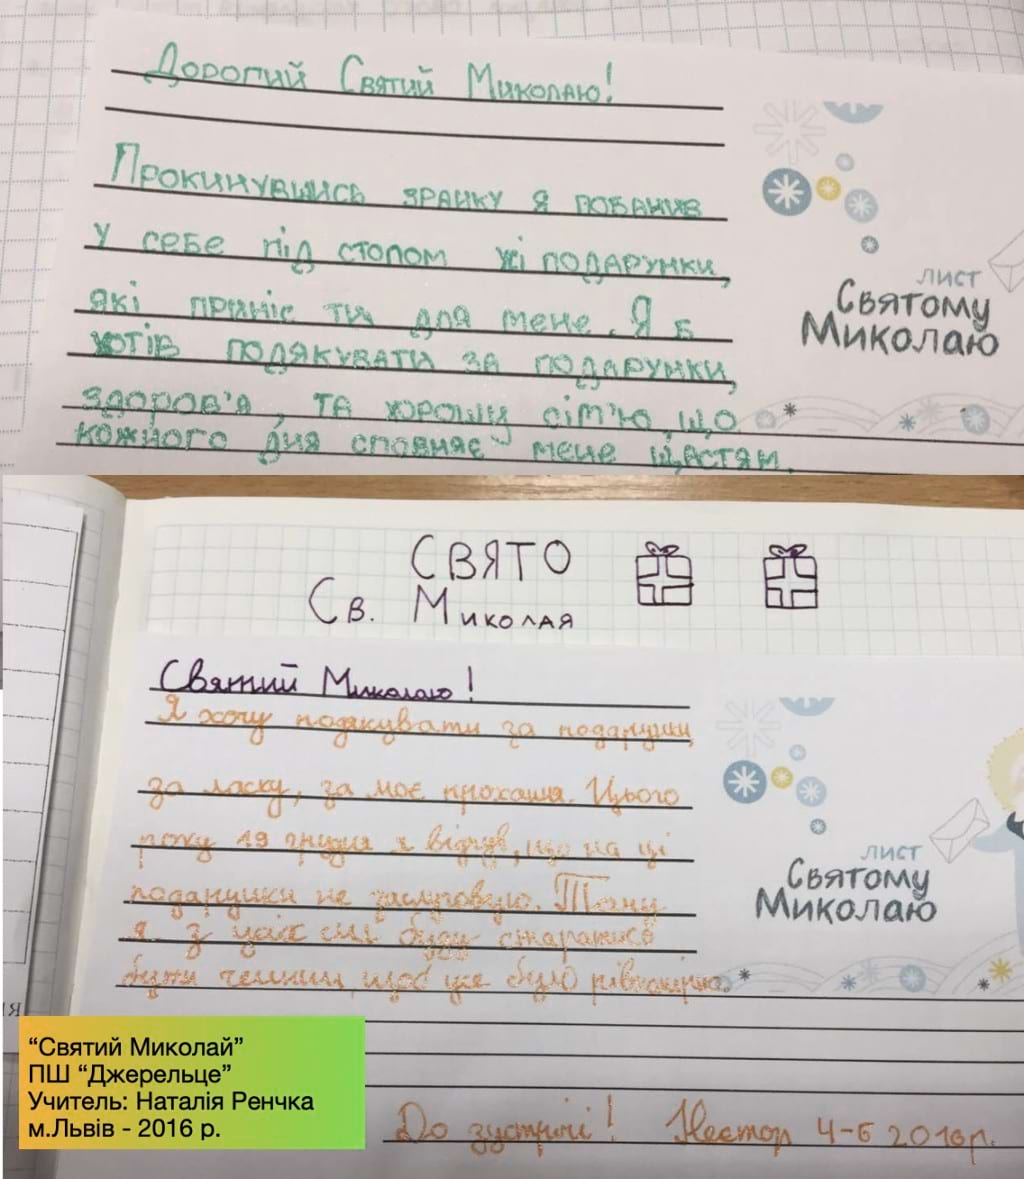 Дорогий Святий Миколаю!
Прокинувшись зранку я побачив
у себе під столом ці подарунки,
які приніс ти для мене. Я б
хотів подякувати за подарунки,
здоров'я, та хорошу сім'ю, що
кожного дня сповняє мене щастям.
ЛИСТ
СВЯТОМУ
МИКОЛАЮ
СВЯТО
Св. Миколая
Святий Миколаю!
Я хочу подякувати за подарунки,
за ласку, за моє прохання. Цього
року 19 грудня я відчув, що на ці
подарунки не заслуговую. Тому
я з усіх сил буду старатися
бути чемним, щоб це було рівномірно.
ЛИСТ
СВЯТОМУ
МИКОЛАЮ
До зустрічі! Нестор 4-Б 2016р.
“Святий Миколай”
ПШ “Джерельце”
Учитель: Наталія Ренчка
м.Львів - 2016 р.